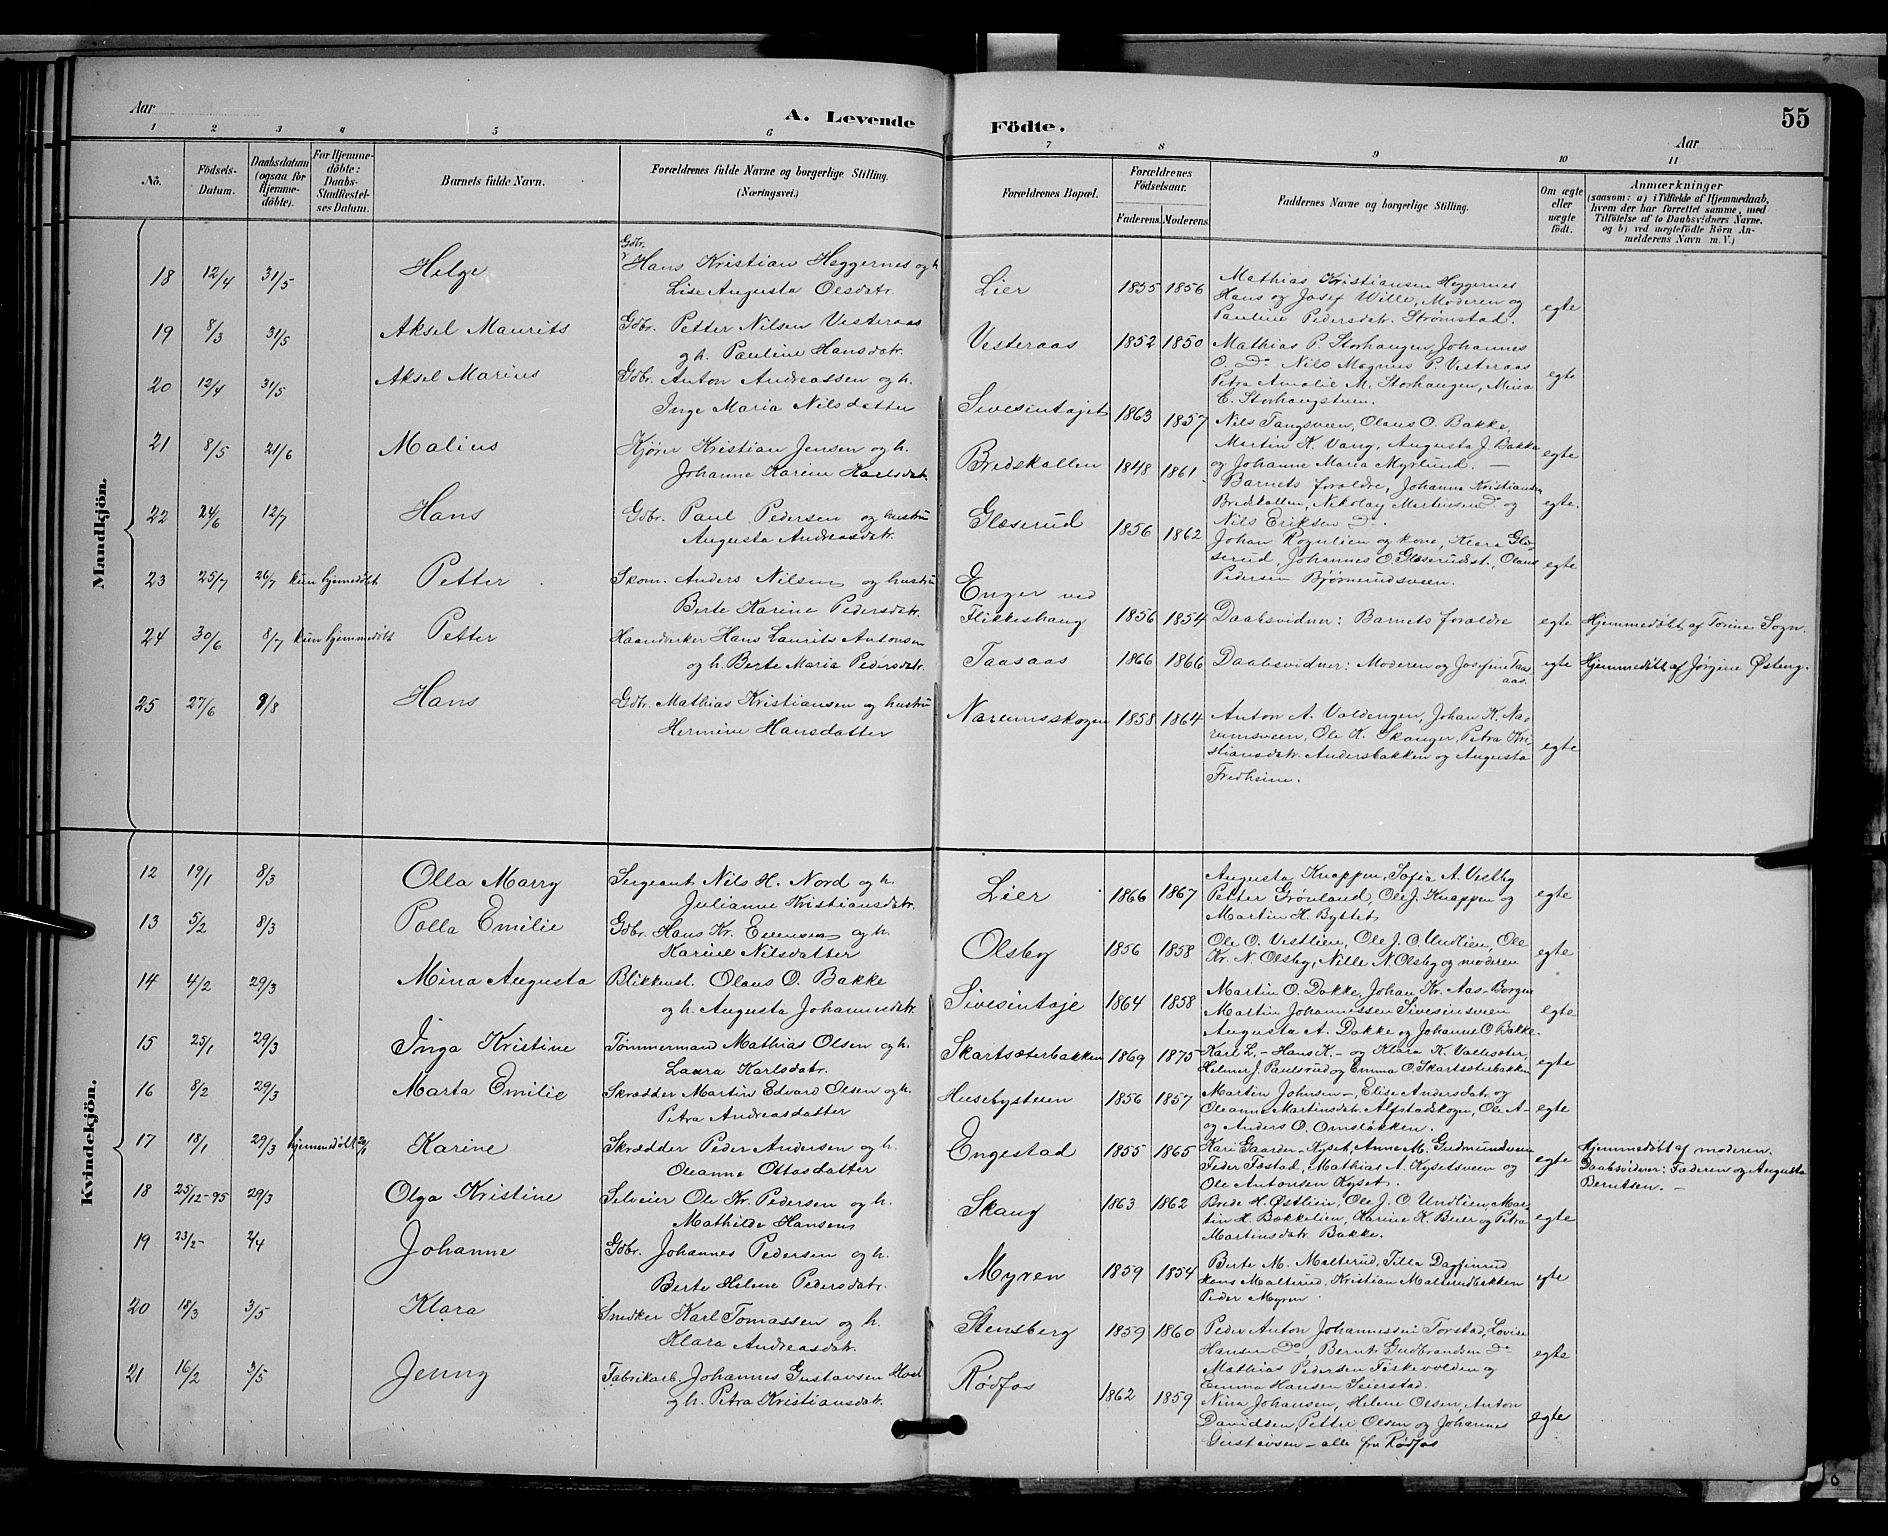 Aar
A. Levende
Födte.
Aar
55
1 2 3 4 5 6 7 8 9 10 11
No.
Födsels-Datum.
Daabsdatum (ogsaa for Hjemme-döbte).
For Hjemme-döbte: Daabs-Stadfæstelses Datum.
Barnets fulde Navn.
Forældrenes fulde Navne og borgerlige Stilling.
(Næringsvei.)
Forældrenes Bopæl.
Forældrenes Födselsaar.
Faderens. Moderens.
Faddernes Navne og borgerlige Stilling.
Om ægte eller uægte födt.
Anmærkninger
(saasom: a) i Tilfælde af Hjemmedaab, hvem der har forrettet samme, med Tilföielse af to Daabsvidners Navne. og b) ved uægtefödte Börn Anmelderens Navn m. V.)
Mandkjön.
18 12/4 31/5 Helge Gdbr. Hans Kristian Heggernes og h. Lise Augusta Olsdatr. Lier 1855 1856 Mathias Kristiansen Heggernes Hans og Josef Wille, Moderen og Pauline Pedersdatr. Strømstad. egte
19 8/3 31/5 Aksel Maurits Gdbr. Petter Nilsen Vesteraas og h. Pauline Hansdatr. Vesteraas 1852 1850 Mathias P. Storhaugen, Johannes O. Do Nils Magnus P. Vesteraas Petra Amalie M. Storhaugen, Mina E. Storhaugstuen. egte
20 12/4 31/5 Aksel Marius Gdbr. Anton Andreassen og h. Inge Maria Nilsdatter Sivesintajet 1863 1857 Nils Tangsveen, Olaus O. Bakke, Martin K. Vang, Augusta J. Bakke og Johanne Maria Myrlund. — egte
21 8/5 21/6 Malius Kjörer Kristian Jensen og h. Johanne Karine Karlsdatr. Bredskallen 1848 1861 Barnets foraldre, Johanne Kristiansen Bredskallen, Nikolay Martinsen Do og Nils Eriksen Do. egte.
22 24/6 12/7 Hans Gdbr. Paul Pedersen og hustru Augusta Andreasdatr. Glæserud 1856 1862 Johan Rognlien og kone, Klara Glæserud, Johannes O. Glæserudst., Olaus Pedersen Bjørnerudsveen. egte
23 25/7 26/7 kun hjemmedöbt Petter Skom. Anders Nilsen og hustru Berte Karine Pedersdatr. Enger ved Flikkeshaug 1856 1854 Daabsvidner: Barnets foraldre egte Hjemmedöbt af Torine Sogn.
24 30/6 8/7 kun hjemmedöbt Petter Haandverker Hans Laurits Antonsen og h. Berte Maria Pedersdatr. Taasaas 1866 1866 Daabsvidner: Moderen og Josefine Taasaas. egte Hjemmedöbt af Jørgine Østeng.
25 27/6 9/8 Hans Gdbr. Mathias Kristiansen og hustru Hermine Hansdatter Narumsskogen 1858 1864 Anton A. Valdengen, Johan K. Narumsveen, Ole K. Skanger, Petra Kristiansdatr. Andersbakken og Augusta Fredheim. egte
Kvindekjön.
12 19/1 8/3 Olla Marry Sergeant Nils H. Nord og h. Julianne Kristiansdatr. Lier 1866 1867 Augusta Knappen, Sofia A. Vestby Petter Grönland, Ole J. Knappen og Martin H. Bystet. egte
13 5/2 8/3 Palla Emilie Gdbr. Hans Kr. Evensen og h. Karine Nilsdatter Olsby 1856 1858 Ole O. Vestlien, Ole J. O. Undlien, Ole Kr. N. Olsby, Nille N. Olsby og moderen egte
14 4/2 29/3 Mina Augusta Blikkensl. Olaus O. Bakke og h. Augusta Johannesdatr. Sivesintaje 1864 1858 Martin O. Dakke, Johan Kr. Aas-Borgen Martin Johannessen Sivesinsveen Augusta A. Dakke og Johanne O. Bakke. egte
15 25/1 29/3 Inga Kristine Tømmermand Mathias Olsen og h. Laura Karlsdatr. Skartsæterbakken 1869 1875 Karl L. - Hans K. - og Klara K. Vallesæter, Helmer J. Paulsrud og Emma O. Skartsæterbakken egte
16 8/2 29/3 Marta Emilie Skrædder Martin Edvard Olsen og h. Petra Andreasdatter Husebysteen 1856 1857 Martin Johnsen -, Elise Andersdatr. og Oleanne Martinsdatr. Alfstadskogen, Ole A- og Anders O. Omsløkken. egte
17 18/1 29/3 hjemmedöbt 20/1 Karine Skrædder Peder Andersen og h. Oleanne Ottasdatter Engestad 1855 1865 Kari Gaarder - Kyset, Anne M. Gudmundsveen Peder Fæstad, Mathias A. Kysetsveen og Ole Antonsen Kyset. egte Hjemmedöbt af moderen. Daabsvidner: Faderen og Augusta Berntsen. —
18 25/12-95 29/3 Olga Kristine Selveier Ole Kr. Pedersen og h. Mathilde Hansen Skaug 1863 1862 Brede H. Østlien, Ole J. O. Undlien, Martin H. Bækkelien, Karine K. Beier og Petra Martinsdatr. Bakke. egte
19 23/2- 2/4 Johanne Gdbr. Johannes Pedersen og h. Berte Helene Pedersdatr. Myren 1859 1854 Berte M. Malterud, Tilla Dagfinrud Hans Malterud, Kristian Malterudbakken Peder Myren egte
20 18/3 3/5 Klara Snedker Karl Tomassen og h. Klara Andreasdatr. Stensberg 1859 1860 Peder Anton Johannessen Torstad, Lovise Hansen Do, Bernt Gudbrandsen Do Mathias Pedersen Fiskevolden og Emma Hansen Seierstad. egte
21 16/2 3/5 Jenny Fabrikarb. Johannes Gustavsen og h. Petra Kristiansdatr. Rødfos 1862 1859 Nina Johansen, Helene Olsen, Anton Davidsen, Petter Olsen og Johannes Gustavsen - alle fra Rødfos egte